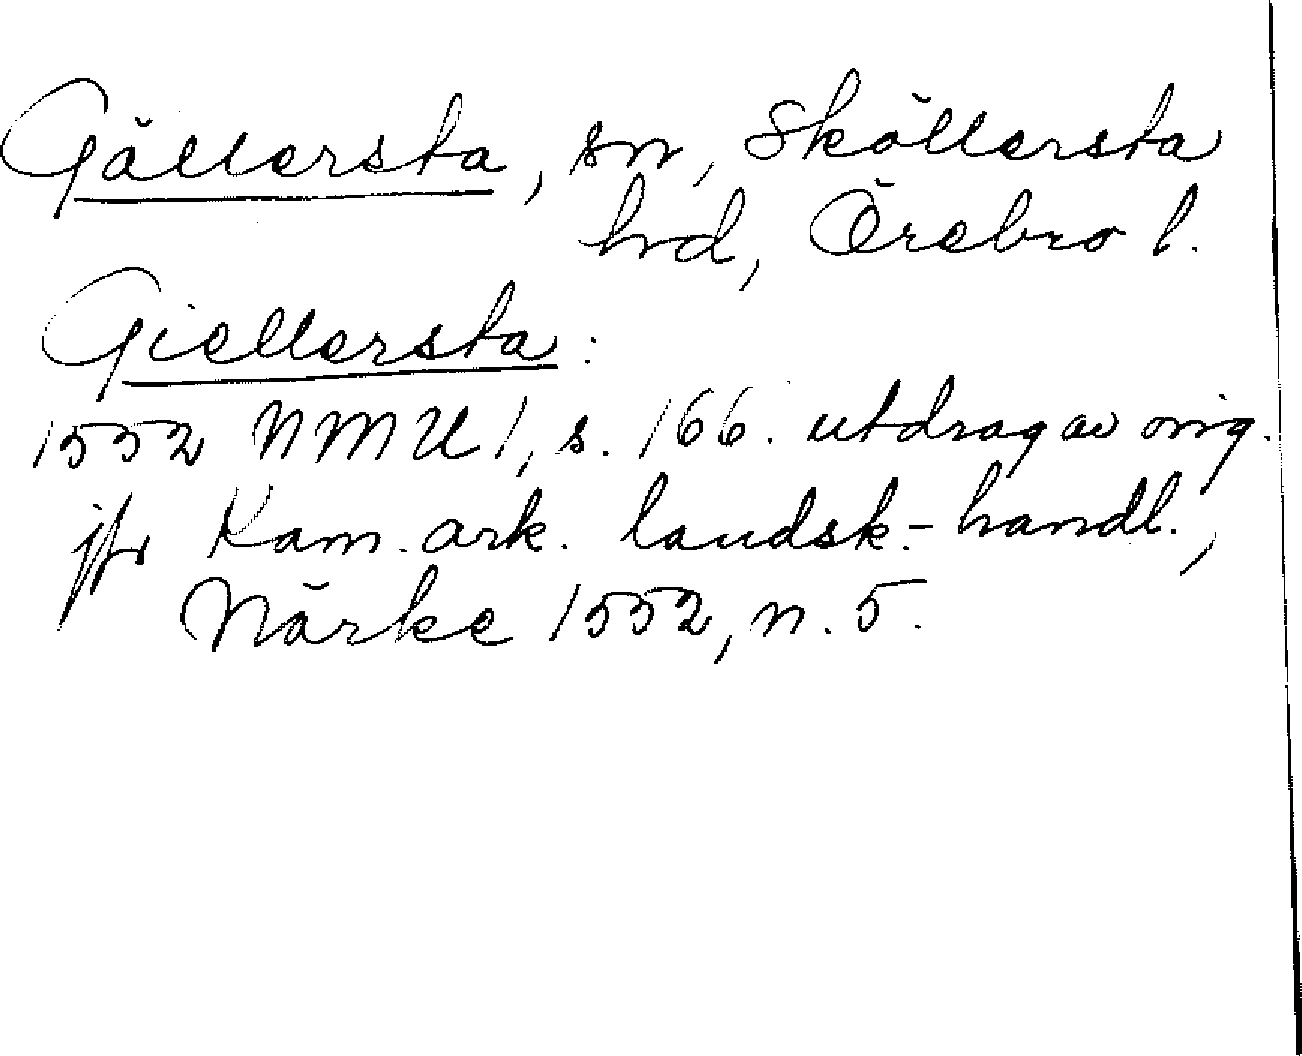 Gällersta, sn, Sköllersta
hrd, Örebro l.
Giellersta:
1552 NMU 1, s. 166. utdrag av orig.
jfr Kam. ark. landsk.-handl.,
Närke 1552, n. 5.